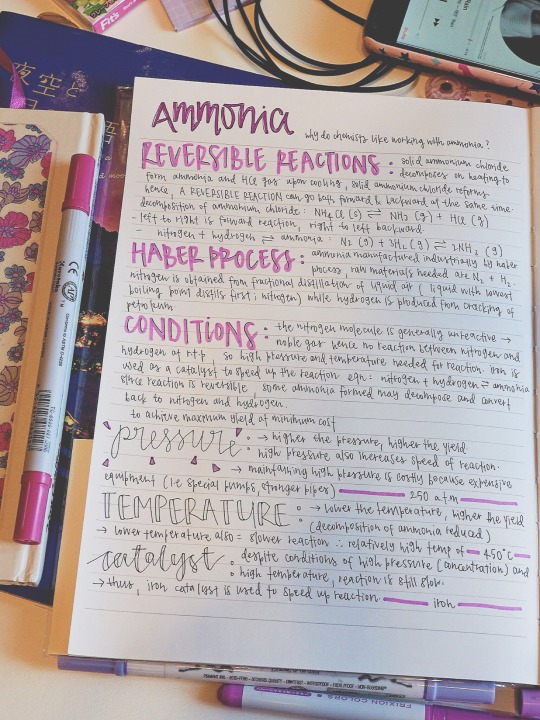 Fits
夜空
AMMONIA
why do chemists like working with ammonia?
REVERSIBLE REACTIONS : solid ammonium chloride
decomposes on heating to
form ammonia and HCl gas upon cooling, solid ammonium chloride reforms
hence, A REVERSIBLE REACTION can go both forward & backward at the same time.
decomposition of ammonium chloride : NH4Cl (s) ⇌ NH3 (g) + HCl (g)
- left to right is forward reaction, right to left backward.
nitrogen + hydrogen ⇌ ammonia : N2 (g) + 3H2 (g) ⇌ 2NH3 (g)
HABER PROCESS : ammonia manufactured industrially by haber
process, raw materials needed are N2 + H2.
nitrogen is obtained from fractional distillation of liquid air (liquid with lowest
boiling point distils first ; nitrogen) while hydrogen is produced from cracking of
petroleum
CONDITIONS : the nitrogen molecule is generally unreactive →
noble gas hence no reaction between nitrogen and
hydrogen at r+p, so high pressure and temperature needed for reaction. iron is
used as a catalyst to speed up the reaction eqn : nitrogen + hydrogen ⇌ ammonia
since reaction is reversible some ammonia formed may decompose and convert
back to nitrogen and hydrogen.
to achieve maximum yield at minimum cost
pressure → higher the pressure, higher the yield
high pressure also increases speed of reaction.
→ maintaining high pressure is costly because expensive
equipment (i.e special pumps, stronger pipes) 250 atm
TEMPERATURE → lower the temperature, higher the yield
(decomposition of ammonia reduced)
→ lower temperature also = slower reaction ∴ relatively high temp of 450°C
catalyst despite conditions of high pressure (concentration) and
high temperature, reaction is still slow.
→ thus, iron catalyst is used to speed up reaction. iron
FRIXION COLORS